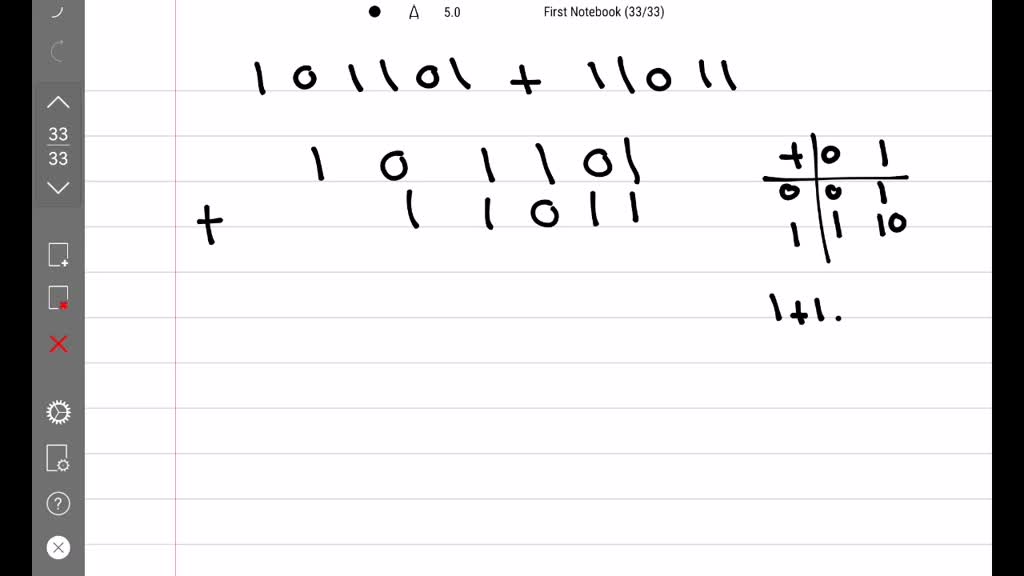 5.0 First Notebook (33/33)
33
33
101101 + 11011
101101
+ 11011
+ 0 1
0 0 1
1 1 10
1+1.
?